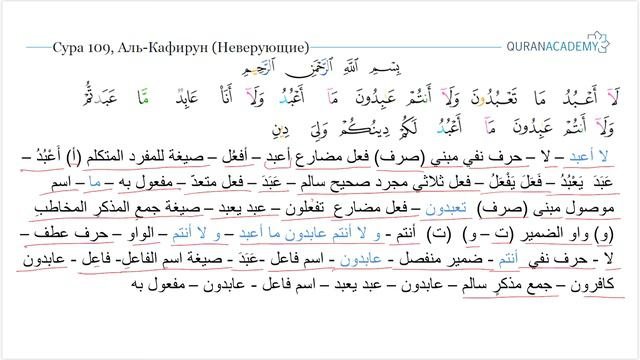 Сура 109, Аль-Кафирун (Неверующие)
QURANACADEMY
بِسْمِ اللَّهِ الرَّحْمَٰنِ الرَّحِيمِ
لَآ أَعْبُدُ مَا تَعْبُدُونَ وَلَآ أَنتُمْ عَٰبِدُونَ مَآ أَعْبُدُ وَلَآ أَنَا۠ عَابِدٌ مَّا عَبَدتُّمْ
وَلَآ أَنتُمْ عَٰبِدُونَ مَآ أَعْبُدُ لَكُمْ دِينُكُمْ وَلِىَ دِينِ
لا أعبد – لا – حرف نفي مبني (صرف) فعل مضارع أعبد – أفعُل – صيغة للمفرد المتكلم (أ) أَعْبُدُ –
عَبَدَ يَعْبُدُ – فَعَلَ يَفْعُلُ – فعل ثلاثي مجرد صحيح سالم – عَبَدَ – فعل متعدّ – مفعول به – ما – اسم
موصول مبنى (صرف) تعبدون – فعل مضارع تفعُلون – عبد يعبد – صيغة جمع المذكر المخاطب
(و) واو الضمير (ت – و) (ت) أنتم - و لا أنتم عابدون ما أعبد – و لا أنتم – الواو – حرف عطف –
لا - حرف نفي أنتم - ضمير منفصل - عابدون - اسم فاعل -عَبَدَ - صيغة اسم الفاعل- فاعِل - عابدون
كافرون – جمع مذكر سالم – عابدون – عبد يعبد – اسم فاعل - عابدون – مفعول به